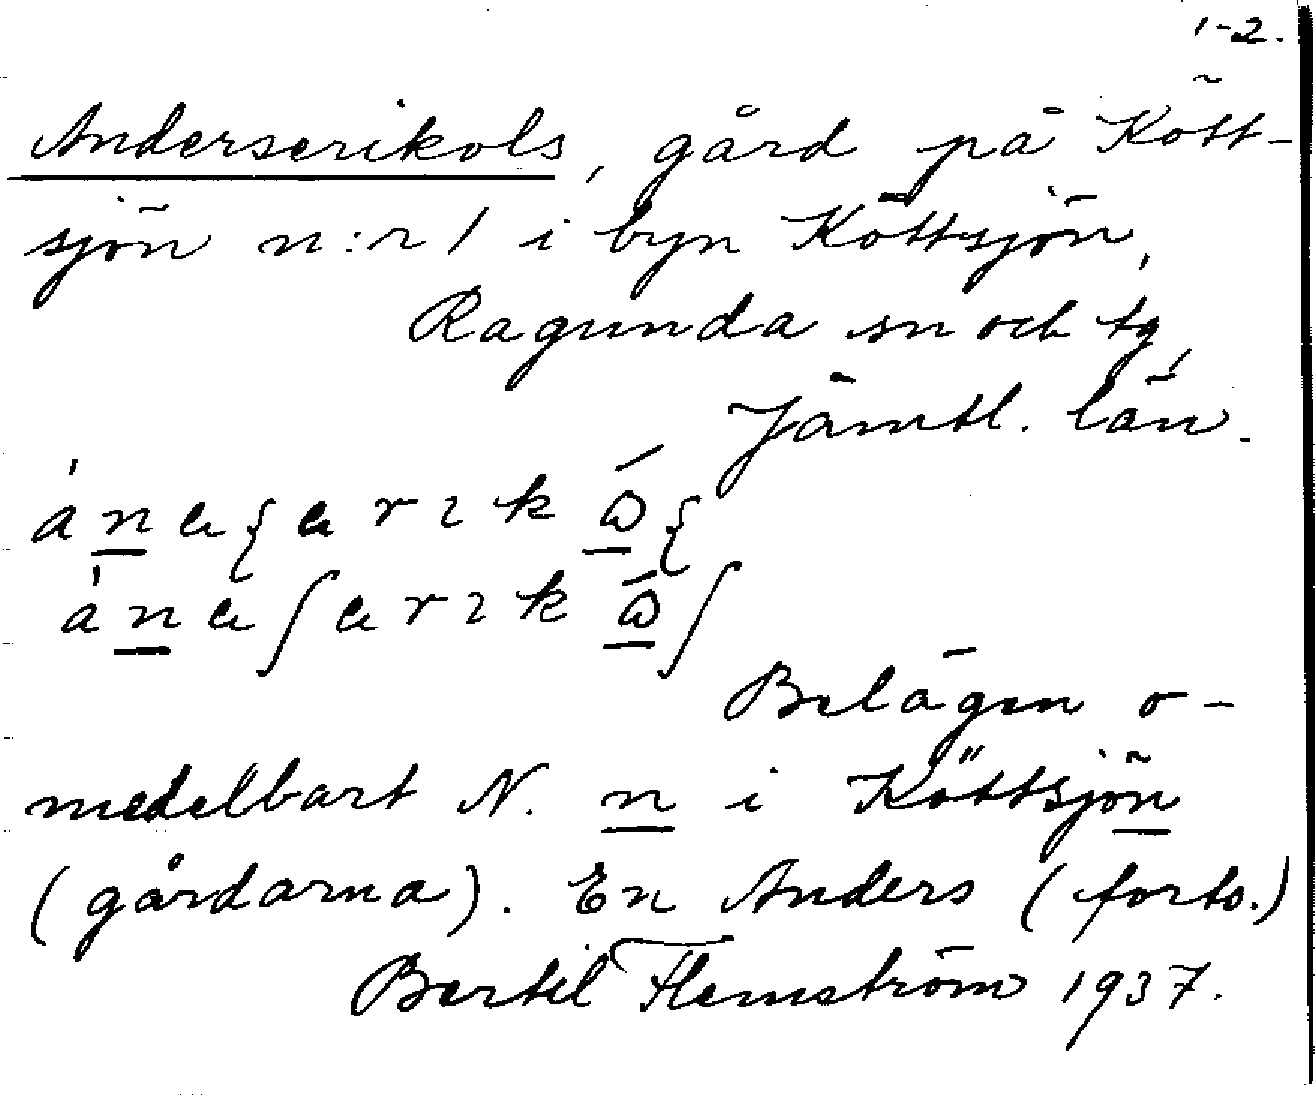 1-2.
Anderserikols, gård på Kött-
sjön n:r 1 i byn Köttsjön,
Ragunda sn och tg,
Jämtl. län.
Belägen o-
medelbart N. n i Köttsjön
(gårdarna). En Anders (forts.)
Bertil Flemström 1937.